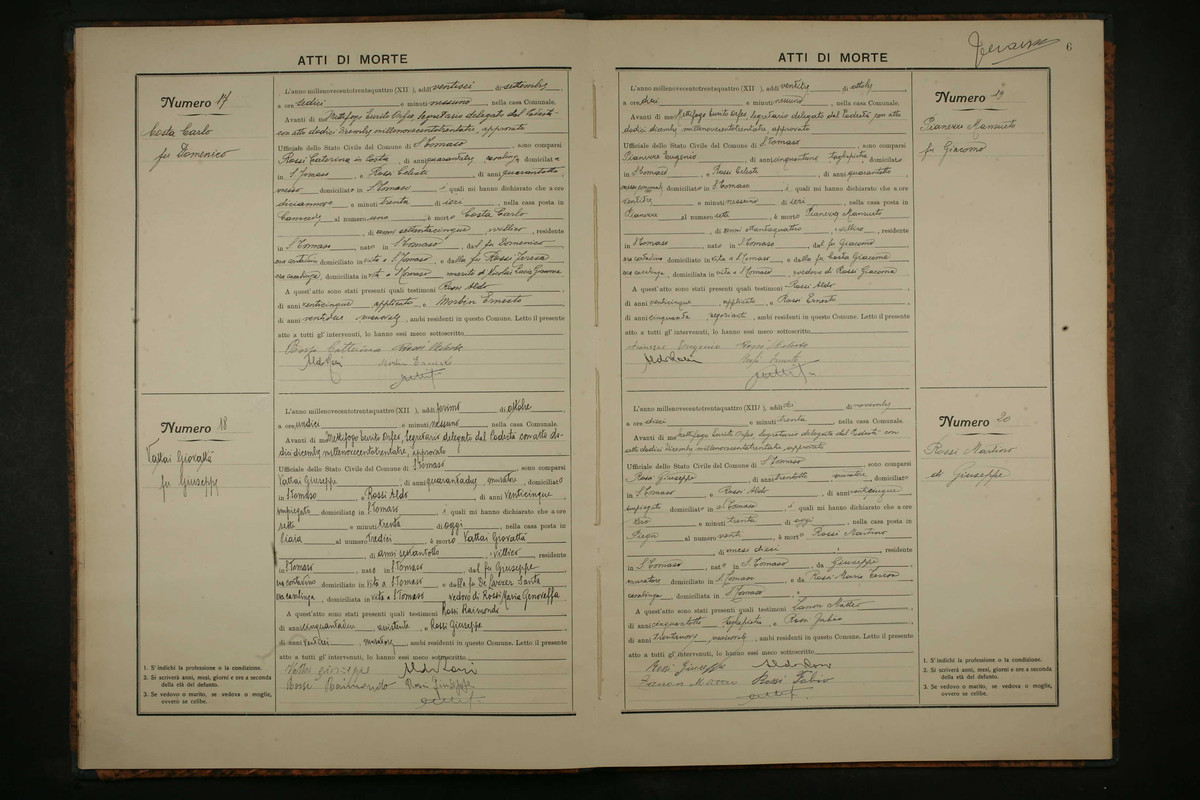 ATTI DI MORTE
Numero 17
Costa Carlo
fu Domenico
L'anno millenovecentotrentaquattro (XII ), addì ventisei di settembre
a ore sedici e minuti nessuno, nella casa Comunale.
Avanti di me Mettifogo Eurito Orfeo, Segretario delegato dal Podestà
con atto dodici dicembre millenovecentotrentatre, approvato
Ufficiale dello Stato Civile del Comune di S. Tomaso, sono comparsi
Rossi Caterina in Costa, di anni quarantatre, casalinga domiciliata
in S. Tomaso, e Rossi Celeste di anni quarantotto,
messo domiciliato in S. Tomaso i quali mi hanno dichiarato che a ore
diciannove e minuti trenta di ieri, nella casa posta in
al numero uno, è morto Costa Carlo
, di anni settantacinque, residente
in S. Tomaso, nato in S. Tomaso, dal fu Domenico
era contadino domiciliato in vita a S. Tomaso, e dalla fu Rossi Teresa
era casalinga, domiciliata in vita a S. Tomaso marito di
A quest'atto sono stati presenti quali testimoni Rossi Aldo
di anni venticinque applicato, e Morbin Ernesto
di anni ventidue, ambi residenti in questo Comune. Letto il presente
atto a tutti gl' intervenuti, lo hanno essi meco sottoscritto
Numero 18
Vallai Giovatta
fu Giuseppe
L'anno millenovecentotrentaquattro (XII ), addì primo di ottobre,
a ore undici e minuti nessuno, nella casa Comunale.
Avanti di me Mettifogo Eurito Orfeo, Segretario delegato dal Podestà con atto do-
dici dicembre millenovecentotrentatre, approvato
Ufficiale dello Stato Civile del Comune di S. Tomaso, sono comparsi
Vallai Giuseppe, di anni quarantadue, muratore, domiciliato
in S. Tomaso, e Rossi Aldo di anni venticinque
impiegato domiciliato in S. Tomaso i quali mi hanno dichiarato che a ore
sette e minuti trenta di oggi, nella casa posta in
al numero tredici, è morto Vallai Giovatta
, di anni sessantotto, residente
in S. Tomaso, nato in S. Tomaso, dal fu Giuseppe
era contadino domiciliato in vita a S. Tomaso e dalla fu De Santa
era casalinga, domiciliata in vita a S. Tomaso vedovo di Rossi Maria Genoveffa
A quest'atto sono stati presenti quali testimoni Rossi Raimondo
di anni cinquantadue, e Rossi Giuseppe
di anni ventisei, muratore, ambi residenti in questo Comune. Letto il presente
atto a tutti gl' intervenuti, lo hanno essi meco sottoscritto
Vallai Giuseppe Aldo Rossi
Rossi Raimondo Rossi Giuseppe
1. S' indichi la professione o la condizione.
2. Si scriverà anni, mesi, giorni e ore a seconda
della età del defunto.
3. Se vedovo o marito, se vedova o moglie,
ovvero se celibe.
6
ATTI DI MORTE
L'anno millenovecentotrentaquattro (XII ), addì ventitre di ottobre
a ore dieci e minuti nessuno, nella casa Comunale.
Avanti di me Mettifogo Eurito Orfeo, Segretario delegato dal Podestà con atto
dodici dicembre millenovecentotrentatre, approvato
Ufficiale dello Stato Civile del Comune di S. Tomaso, sono comparsi
Pianezze Eugenio, di anni cinquantuno tagliapietra, domiciliato
in S. Tomaso, e Rossi Celeste di anni quarantotto
messo comunale domiciliato in S. Tomaso, i quali mi hanno dichiarato che a ore
ventitre e minuti nessuno di ieri, nella casa posta in
Pianezze al numero sette, è morto Pianezze Mansueto
, di anni ottantaquattro, residente
in S. Tomaso, nato in S. Tomaso, dal fu Giacomo
era contadino domiciliato in vita a S. Tomaso, e dalla fu Costa Giacoma
era casalinga, domiciliata in vita a S. Tomaso, vedovo di Rossi Giacoma
A quest'atto sono stati presenti quali testimoni Rossi Aldo
di anni venticinque, applicato, e Rossi Ernesto
di anni cinquanta, ambi residenti in questo Comune. Letto il presente
atto a tutti gl' intervenuti, lo hanno essi meco sottoscritto
Numero 19
Pianezze Mansueto
fu Giacomo
L'anno millenovecentotrentaquattro (XIII ), addì tre di novembre
a ore dieci e minuti trenta, nella casa Comunale.
Avanti di me Mettifogo Eurito Orfeo, Segretario delegato dal Podestà con
atto dodici dicembre millenovecentotrentatre, approvato
Ufficiale dello Stato Civile del Comune di S. Tomaso, sono comparsi
Rossi Giuseppe, di anni trentotto muratore, domiciliato
in S. Tomaso, e Rossi Aldo, di anni venticinque
impiegato domiciliato in S. Tomaso, i quali mi hanno dichiarato che a ore
e minuti trenta di oggi, nella casa posta in
al numero venti, è morto Rossi Martino
, di mesi dieci, residente
in S. Tomaso, nato in S. Tomaso, da Giuseppe
muratore domiciliato in S. Tomaso, e da Rossi Maria
casalinga, domiciliata in S. Tomaso
A quest'atto sono stati presenti quali testimoni
di anni cinquantotto tagliapietra, e Rossi Fabio
di anni trentenove, ambi residenti in questo Comune. Letto il presente
atto a tutti gl' intervenuti, lo hanno essi meco sottoscritto
Rossi Giuseppe Aldo Rossi
Rossi Fabio
Numero 20
Rossi Martino
di Giuseppe
1. S' indichi la professione o la condizione.
2. Si scriverà anni, mesi, giorni e ore a seconda
della età del defunto.
3. Se vedovo o marito, se vedova o moglie,
ovvero se celibe.